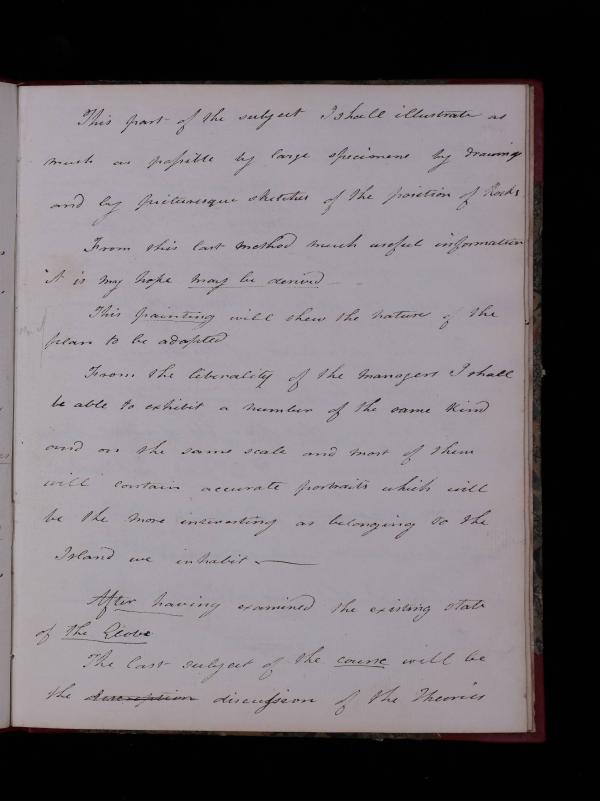 This part of the subject I shall illustrate as
much as possible by large specimens by drawings
and by picturesque sketches of the position of Rocks
From this last method much useful information
it is my hope may be derived
This painting will shew the nature of the
plan to be adopted
From the liberality of the managers I shall
be able to exhibit a number of the same kind
and on the same scale and most of them
will contain accurate portraits which will
be the more interesting as belonging to the
Island we inhabit —
After having examined the existing state
of the Globe
The last subject of the course will be
the description discussion of the Theories